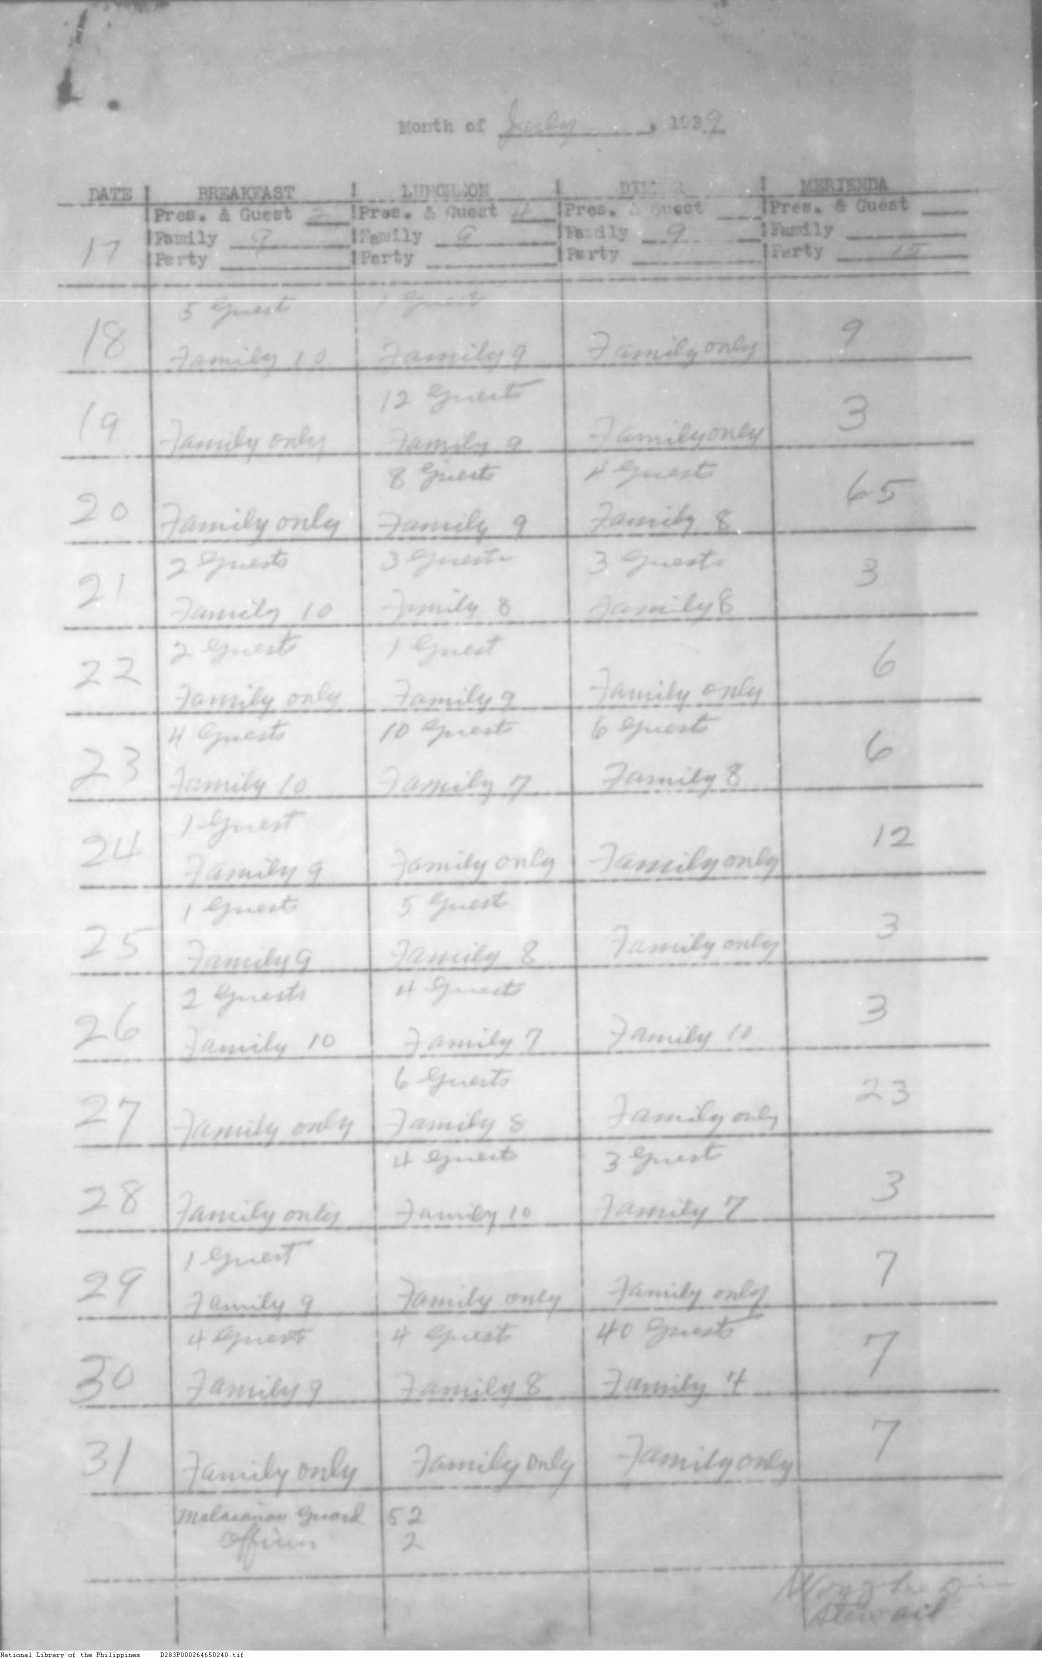 Month of July, 1939
DATE BREAKFAST LUNCHEON DINNER MERIENDA
Pres. & Guest 2 Pres. & Guest 4 Pres. & Guest Pres. & Guest
17 Family 9 Family 9 Family 9 Family
Party Party Party Party 15
5 Guest 1 Guest
18 Family 10 Family 9 Family only 9
12 Guests
19 Family only Family 9 Family only 3
8 Guests 4 Guests
20 Family only Family 9 Family 8 65
2 Guests 3 Guests 3 Guests
21 Family 10 Family 8 Family 8 3
2 Guests 1 Guest
22 Family only Family 9 Family only 6
4 Guests 10 Guests 6 Guests
23 Family 10 Family 7 Family 8 6
1 Guest
24 Family 9 Family only Family only 12
1 Guest 5 Guest
25 Family 9 Family 8 Family only 3
2 Guests 4 Guests
26 Family 10 Family 7 Family 10 3
6 Guests
27 Family only Family 8 Family only 23
4 Guest 3 Guest
28 Family only Family 10 Family 7 3
1 Guest
29 Family 9 Family only Family only 7
4 Guest 4 Guest 40 Guests
30 Family 9 Family 8 Family 4 7
31 Family only Family only Family only 7
Malacañan Guard 52
Officers 2
Steward
National Library of the Philippines D283P000264650240.tif